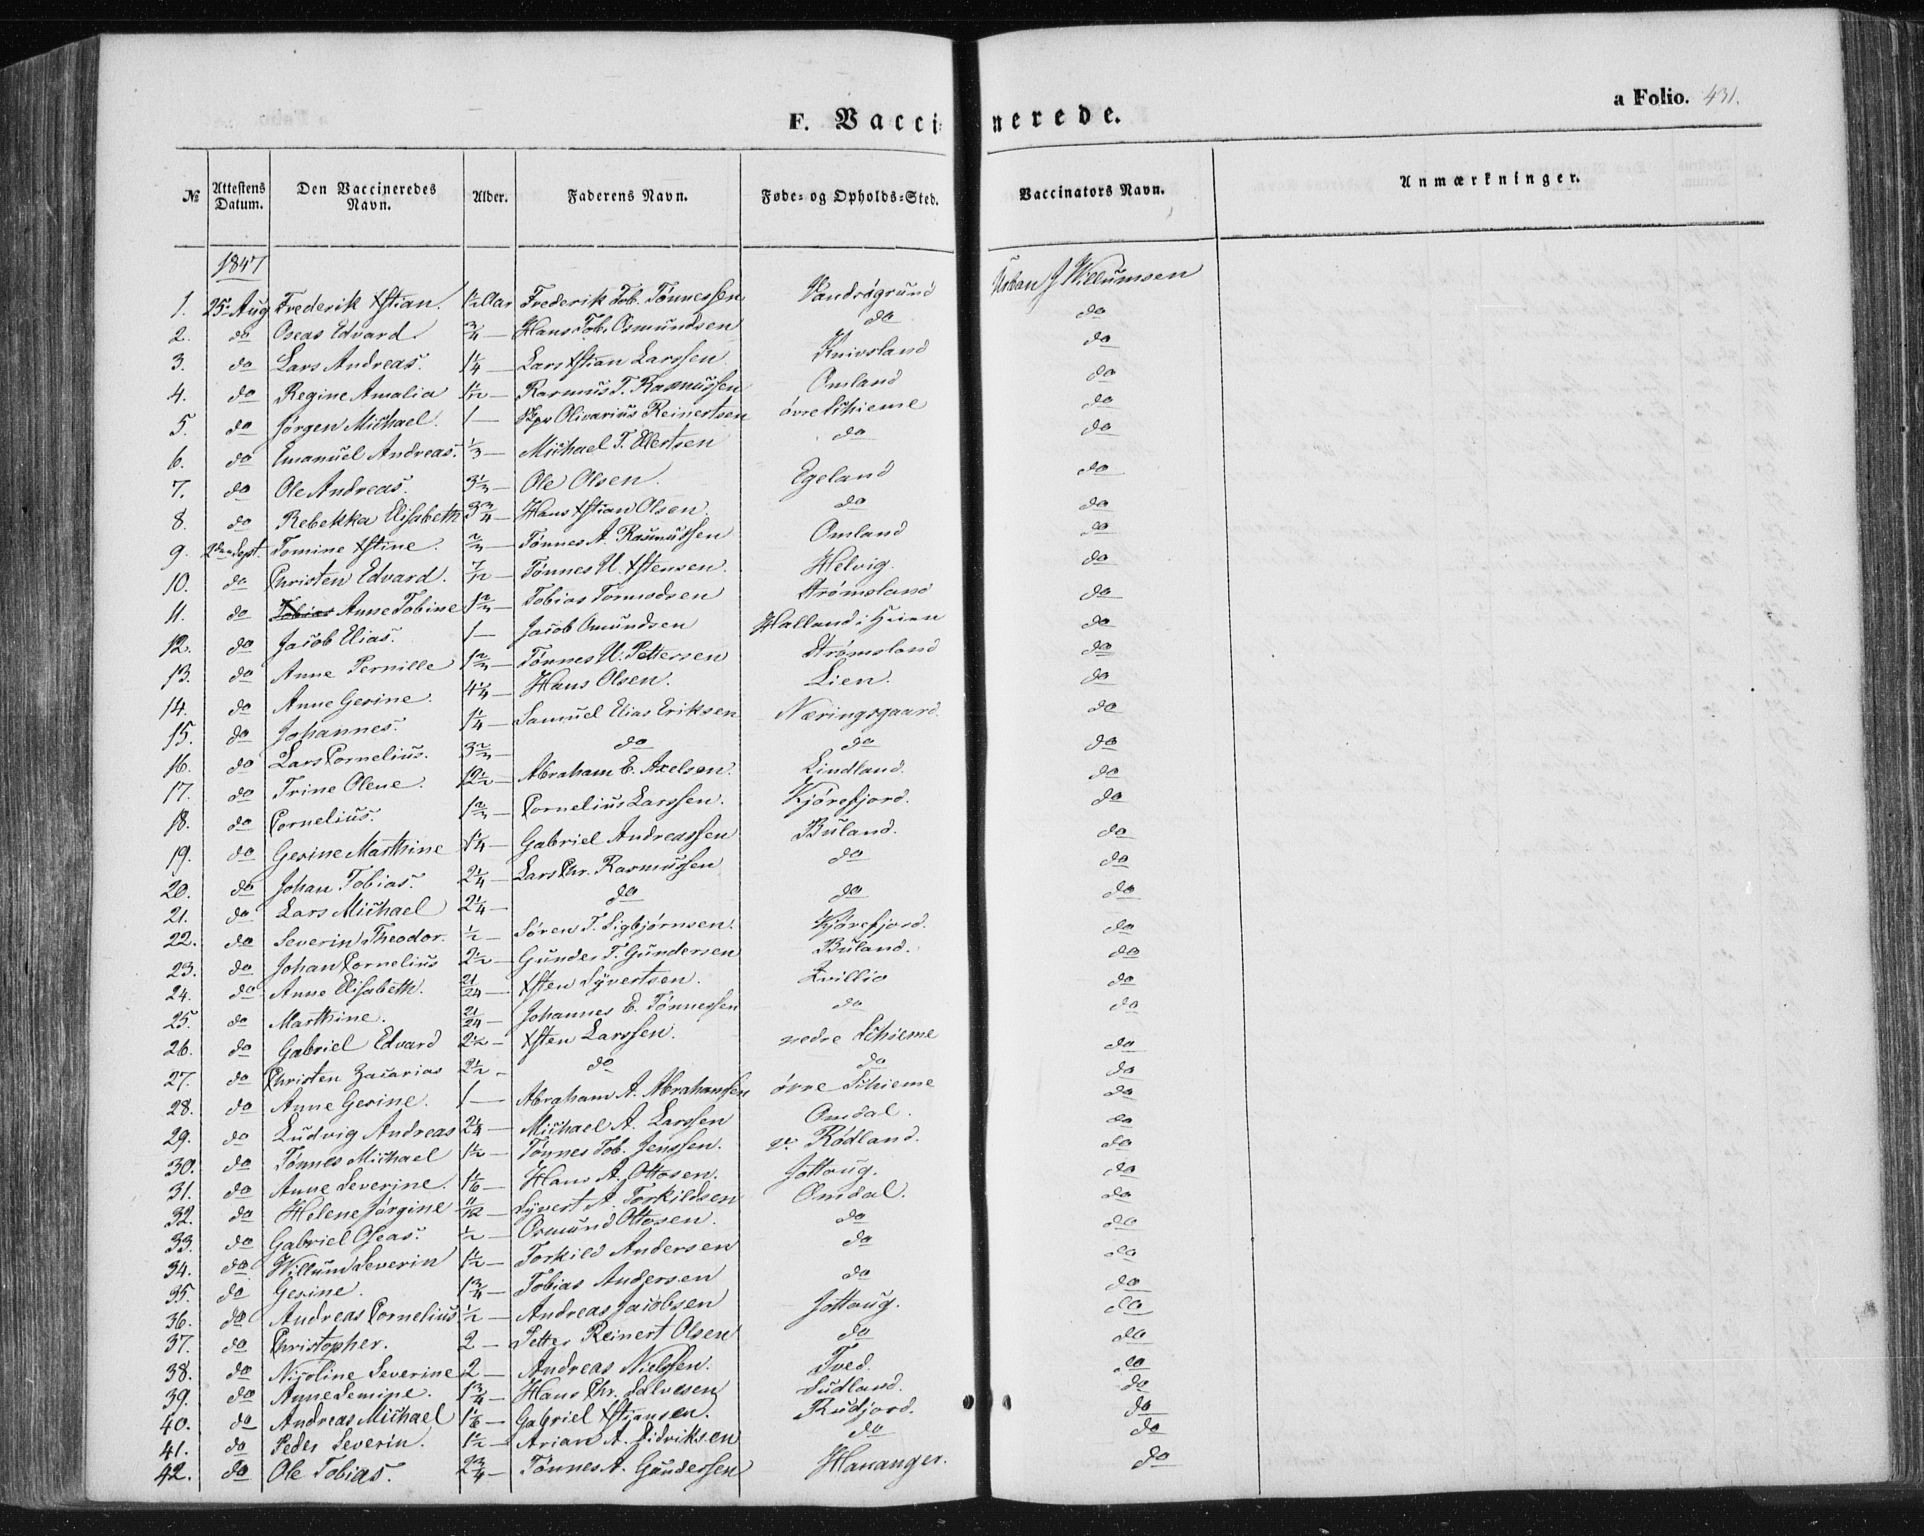 a Folio. 431.
F. Vaccinerede.
№ Attestens Datum. Den Vaccineredes Navn. Alder. Faderens Navn. Føde- og Opholds-Sted. Vaccinators Navn. Anmærkninger.
1847
1. 25. Aug Frederik Xstian. 1½ Aar Frederik Tob. Tønnessen Vandrøgrund Urban J Willumsen
2. do Oseas Edvard ¾ — Hans Tob. Osmundsen do do
3. do Lars Andreas. 1¼ — Lars Xstian Larssen Knivsland do
4. do Regine Amalia 1½ — Rasmus T. Rasmussen Omland do
5. do Jørgen Michael. 1 — Olivarius Reinertsen øvre Schieme do
6. do Emanuel Andreas. ⅓ — Michael T. Ellertsen do do
7. do Ole Andreas. 3⅓ — Ole Olsen. Egeland do
8. do Rebekka Elisabeth 3¾ — Hans Xstian Olsen. do do
9. 2den Sept. Tomine Xstine. ⅔ — Tønnes A. Rasmussen Omland do
10. do Christen Edvard. 7/12 — Tønnes U. Xstensen. Helvig. do
11. do Tobias Anne Tobine 1⅔ — Tobias Tormodsen Strømsland do
12. do Jacob Elias. 1 — Jacob Omundsen Halland i Heien do
13. do Anne Pernille 1⅔ — Tønnes U. Pettersen Strømsland do
14. do Anne Gesine. 4¼ — Hans Olsen. Lien. do
15. do Johannes. 1¼ — Samuel Elias Eriksen Næringsgaard. do
16. do Lars Cornelius. 3⅔ — do do do
17. do Trine Olene. 12½ — Abraham E. Axelsen. Lindland. do
18. do Cornelius. 1⅔ — Cornelius Larssen. Kjørefjord. do
19. do Gesine Marthine 1¼ — Gabriel Andreassen Buland. do
20. do Johan Tobias. 2¼ — Lars Chr. Rasmussen do do
21. do Lars Michael 2¼ — do do do
22. do Severin Theodor. ½ — Søren T. Sigbjørnsen. Kjørefjord. do
23. do Johan Cornelius 2½ — Gunder T. Gundersen Buland. do
24. do Anne Elisabeth. 21/24 — Xsten Syvertsen. Kvillio do
25. do Marthine. 21/24 — Johannes E. Tønnessen do do
26. do Gabriel Edvard 2½ — Xsten Larssen. nedre Schieme do
27. do Christen Zacarias 2½ — do do do
28. do Anne Gesine. 1 — Abraham A. Abrahamsen øvre Schieme do
29. do Ludvig Andreas 2¼ — Michael A. Larssen Omdal. do
30. do Tønnes Michael 1½ — Tønnes Tob. Jenssen. Rødland. do
31. do Anne Severine. 1⅙ — Hans A. Ottosen. Jøttoug. do
32. do Helene Jørgine 11/12 — Syvert A. Torkildsen Omdal. do
33. do Gabriel Oseas. ½ — Osmund Ottosen. do do
34. do Willum Severin 1½ — Torkild Andersen do do
35. do Gesine. 1¾ — Tobias Andersen do do
36. do Andreas Cornelius ½ — Andreas Jacobsen Jøttoug. do
37. do Christopher. 2 — Petter Reinert Olsen do do
38. do Nicoline Severine 2 — Andreas Nielssen. Tved. do
39. do Anne Semine. 1¾ — Hans Chr. Salvesen Sudland. do
40. do Andreas Michael 1⅙ — Gabriel Xstiansen. Rudjord. do
41. do Peder Severin. 1½ — Arian A. Didriksen do do
42. do Ole Tobias. 2¾ — Tønnes A. Gundersen Hananger. do